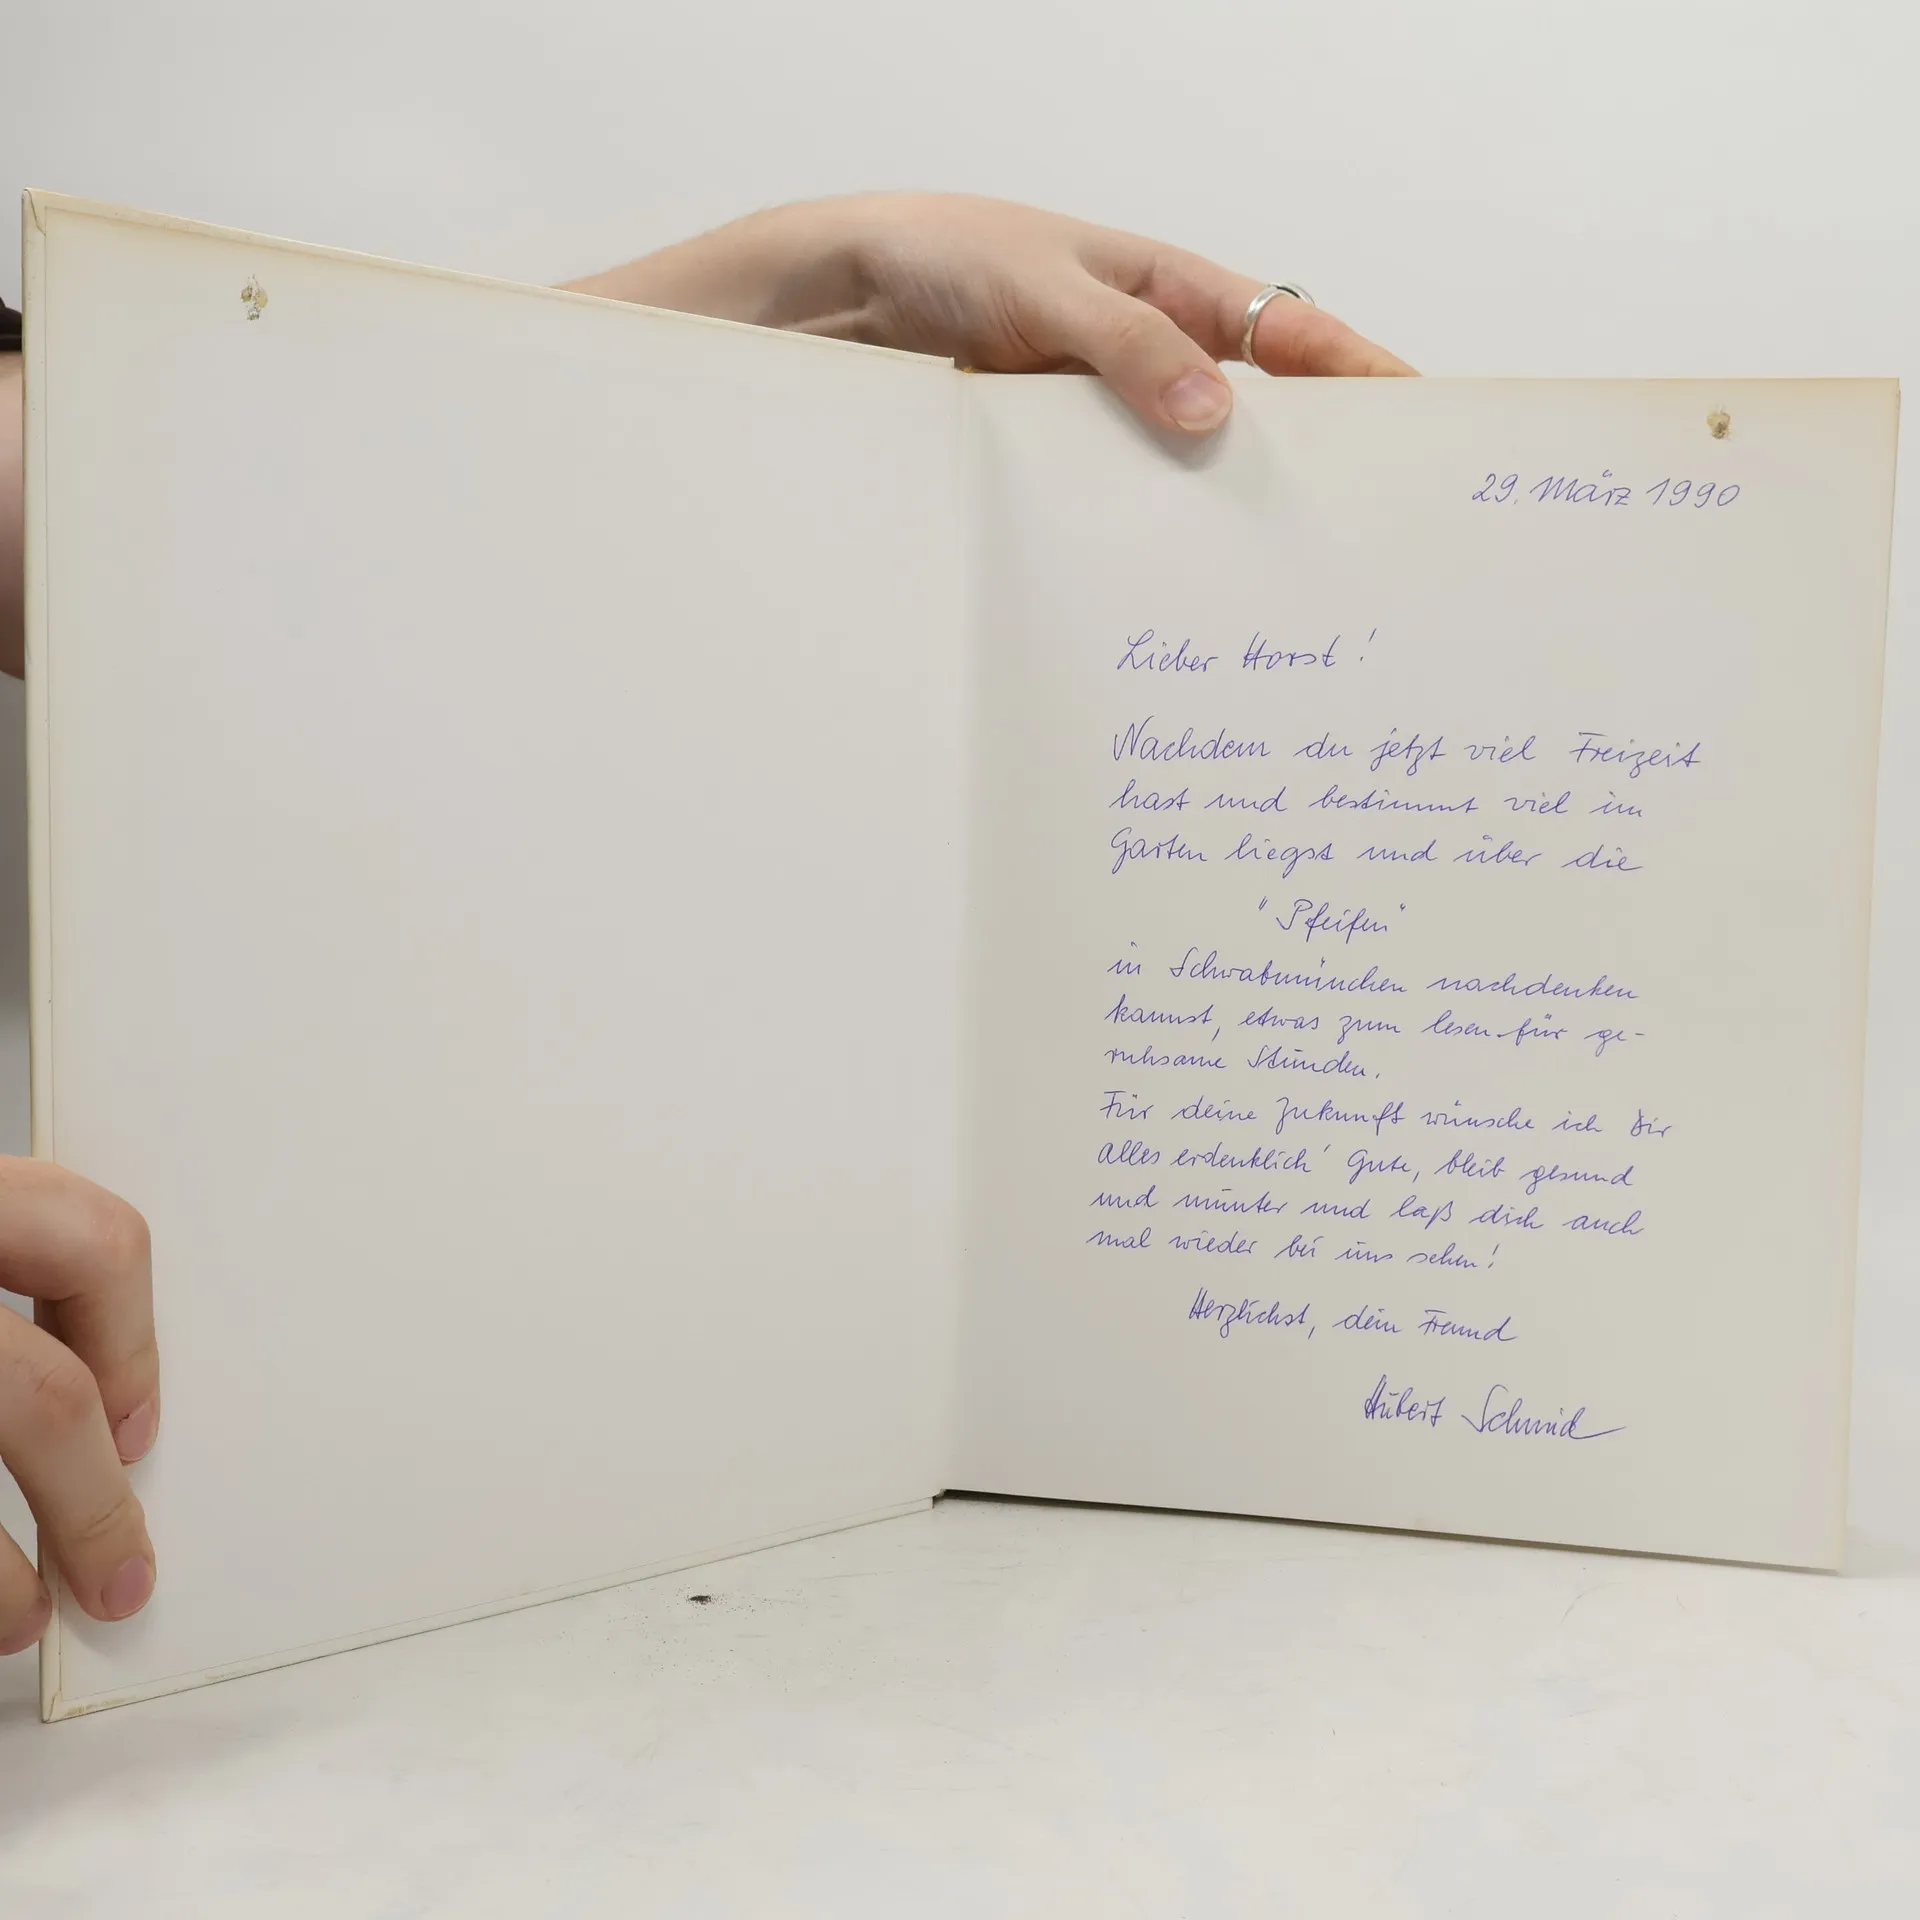 29. März 1990
Lieber Horst!
Nachdem du jetzt viel Freizeit
hast und bestimmt viel im
Garten liegst und über die
"Pfeifen"
in Schwabmünchen nachdenken
kannst, etwas zum lesen für ge-
ruhsame Stunden.
Für deine Zukunft wünsche ich Dir
alles erdenklich' Gute, bleib gesund
und munter und laß dich auch
mal wieder bei uns sehen!
Herzlichst, dein Freund
Hubert Schmid